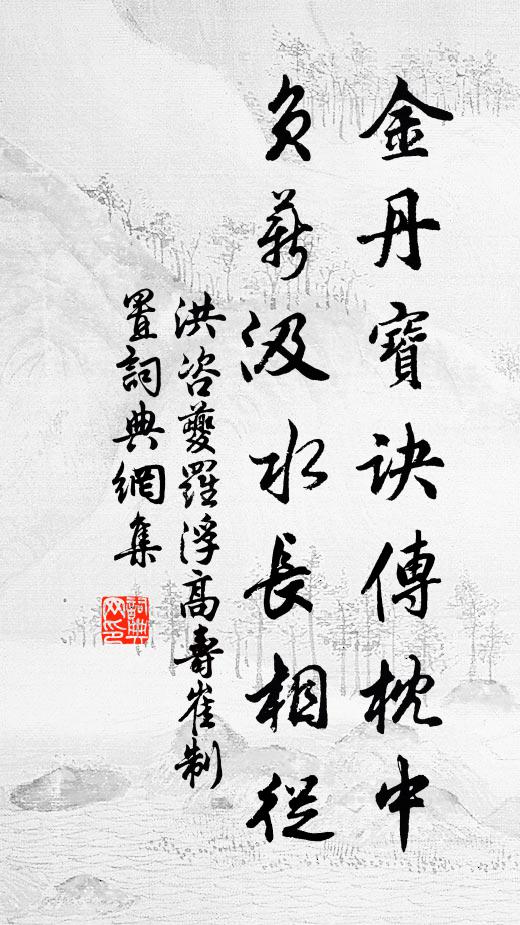 金丹寶訣傳枕中
負薪汲水長相從
洪咨夔羅浮高壽崔制
置詞典網集
詞典網印